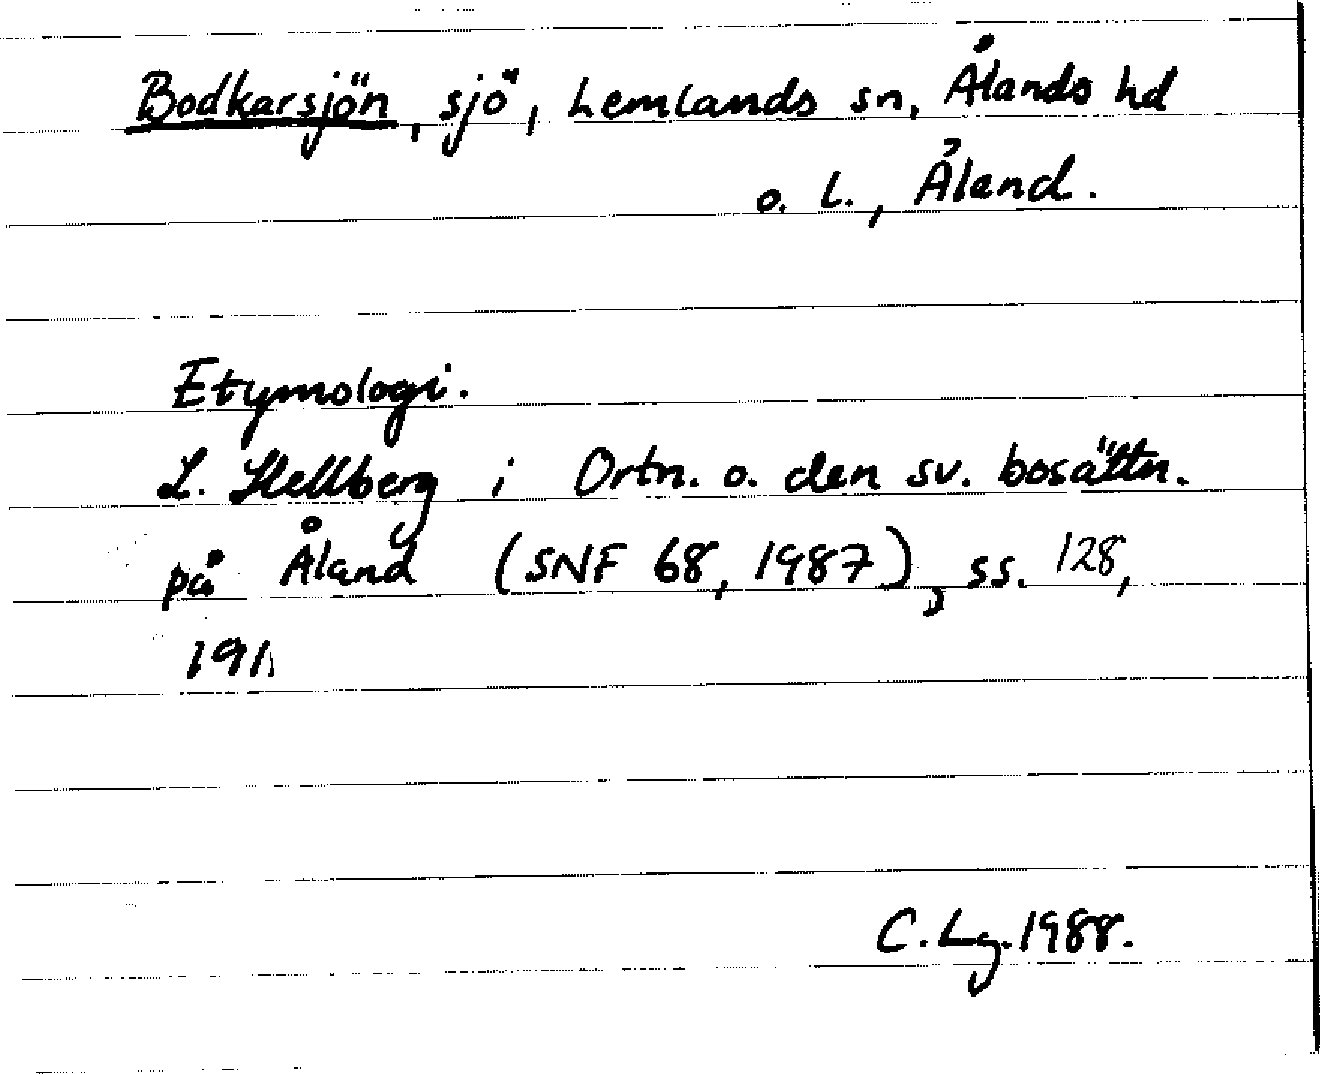 Bodkarsjön, sjö, Lemlands sn, Ålands hd
o. l., Åland.
Etymologi.
L. Hellberg i Ortn. o. den sv. bosättn.
på Åland (SNF 68, 1987), ss. 128,
191
C. Lg. 1988.